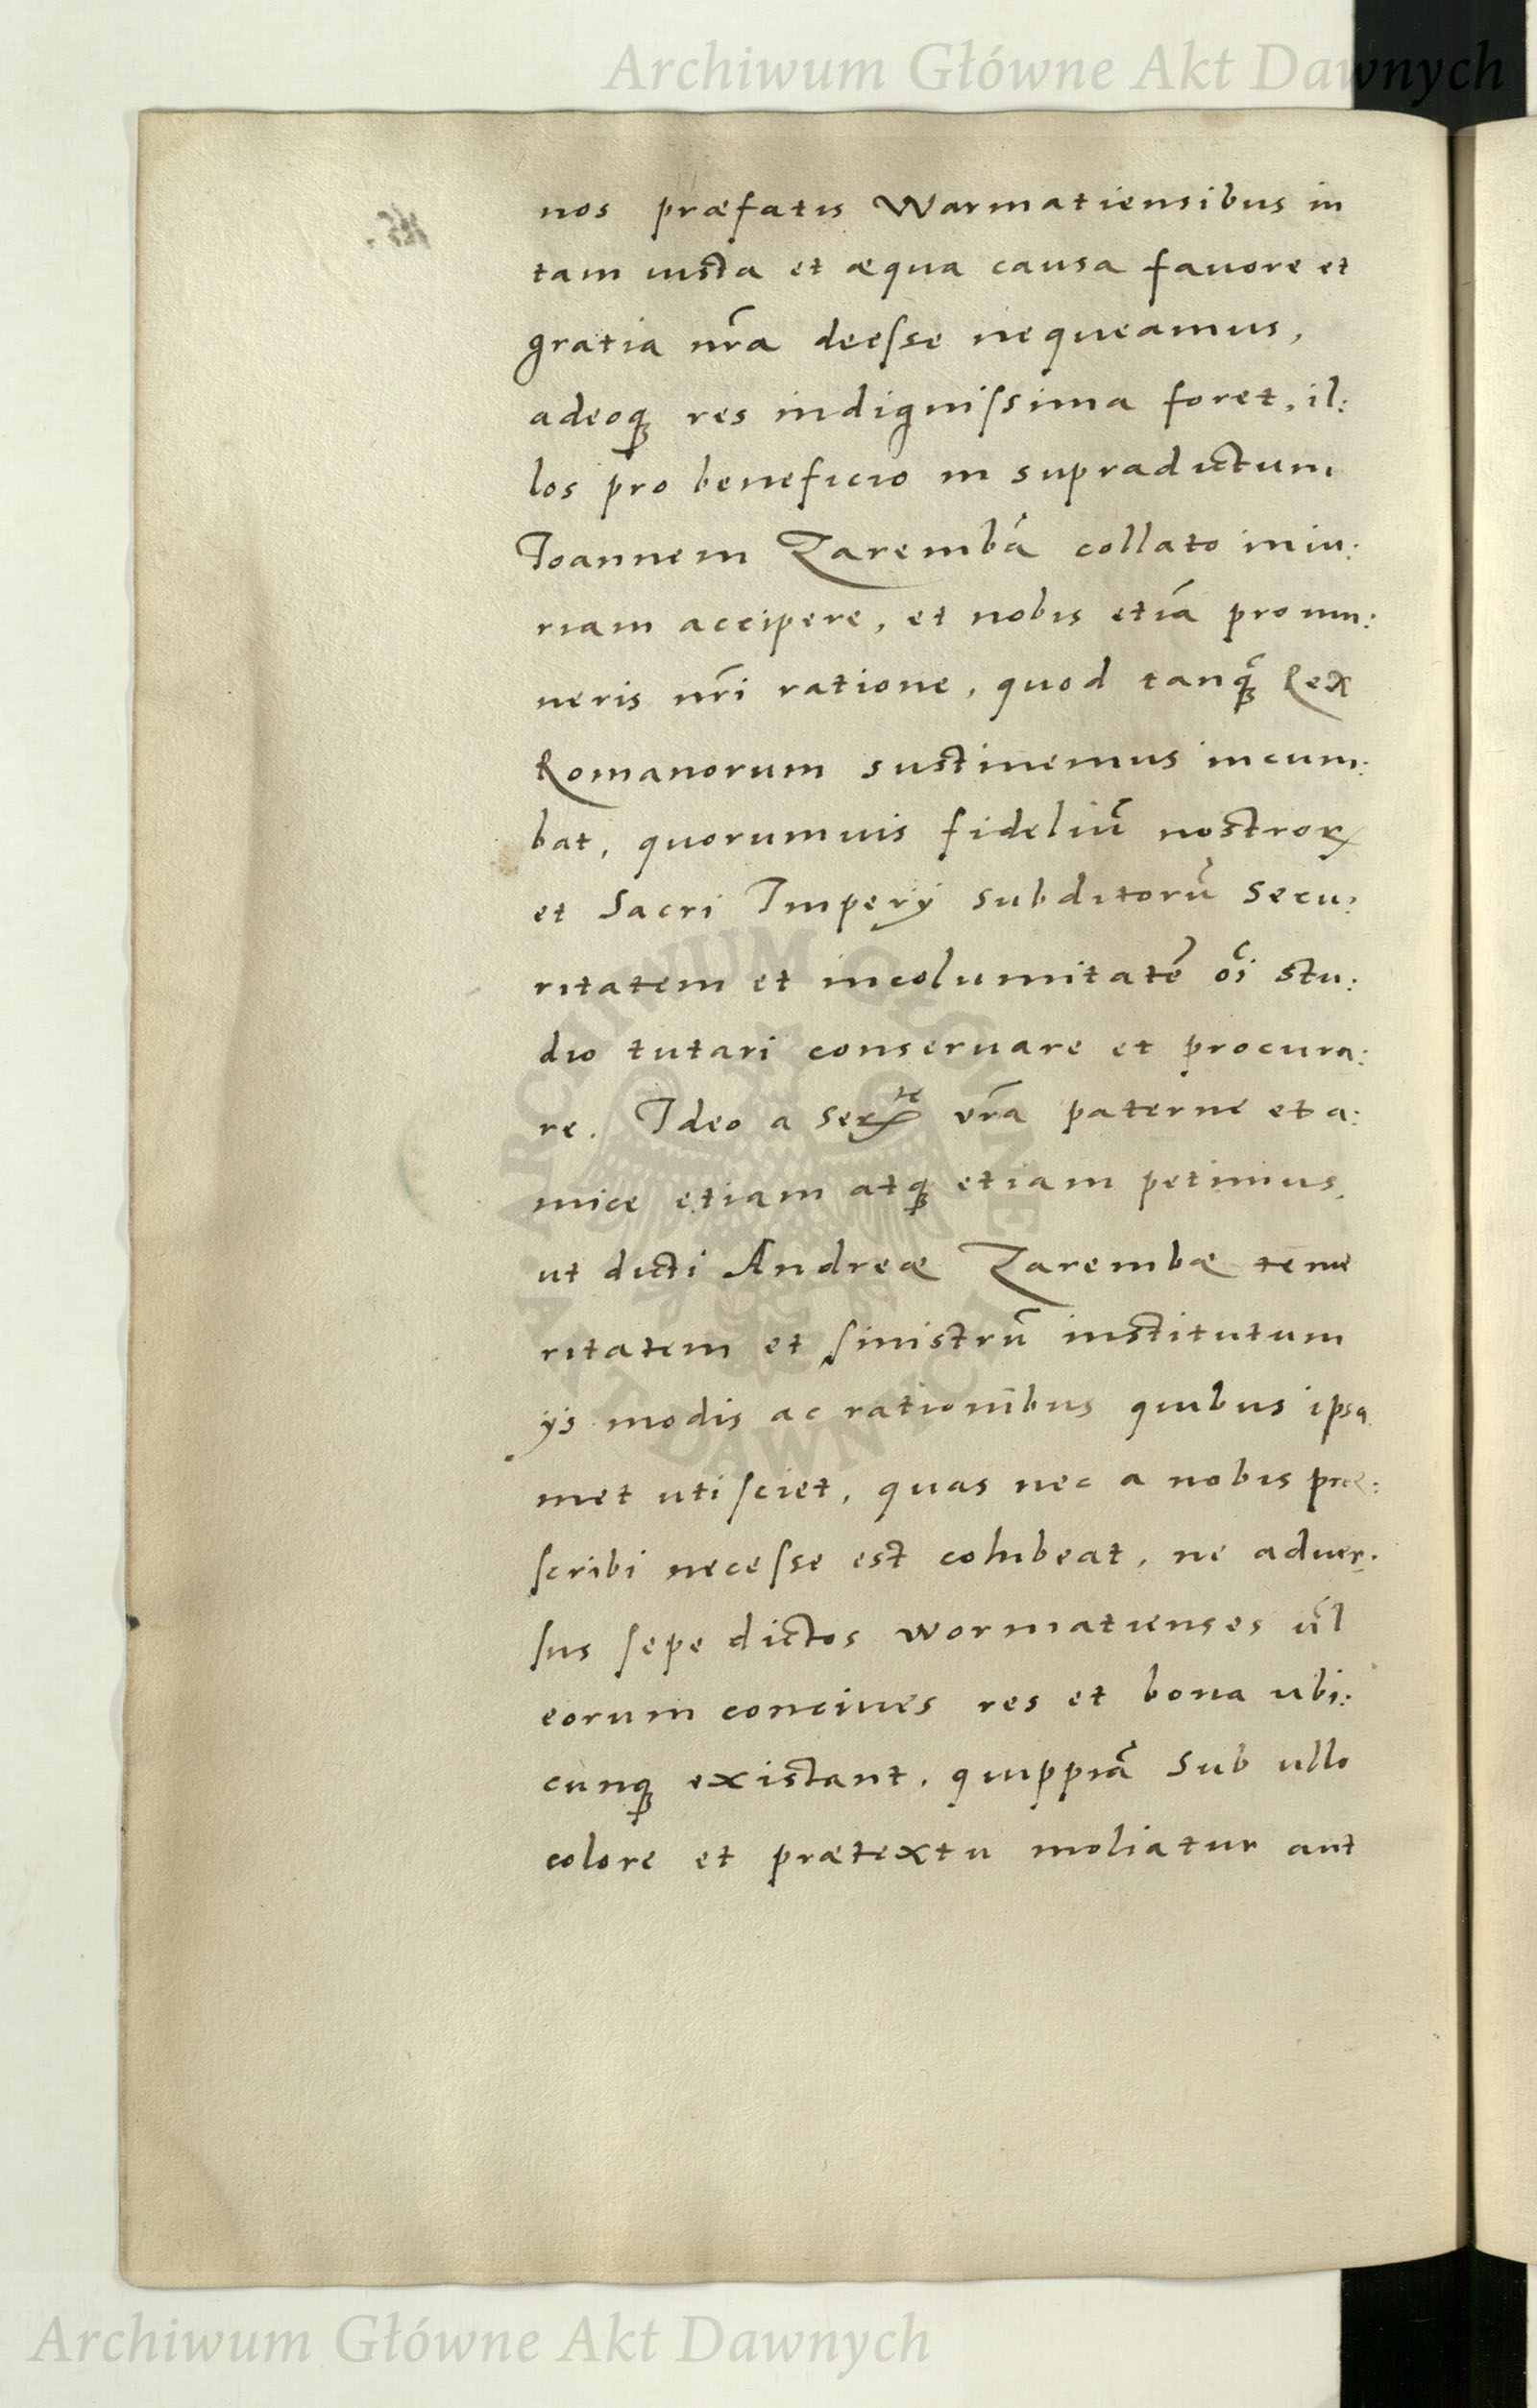 Archiwum Główne Akt Dawnych
nos præfatis Warmatiensibus in
tam iusta et æqua causa fauore et
gratia nr̃a deesse nequeamus,
adeoq; res indignissima foret, il:
los pro beneficio in supradictum
Ioannem Zarembã collato iniu:
riam accipere, et nobis etiã pro mu:
neris nr̃i ratione, quod tanq̃; Rex
Romanorum sustinemus incum:
bat, quorumuis fideliũ nostroꝝ
et Sacri Imperÿ subditorũ secu:
ritatem et incolumitatẽ oĩ stu:
dio tutari conseruare et procura:
re. Ideo a Serᵗᵉ vr̃a paterne et a:
mice etiam atq; etiam petimus,
ut dicti Andreæ Zarembæ teme
ritatem et sinistrũ institutum
ÿs modis ac rationibus quibus ipsa
met uti sciet, quas nec a nobis præ:
scribi necesse est cohibeat, ne aduer:
sus sepe dictos wormatienses ũl
eorum conciues res et bona ubi:
cunq; existant, quippiã sub ullo
colore et prætextu moliatur aut
ARCHIWUM GŁÓWNE AKT DAWNYCH
Archiwum Główne Akt Dawnych